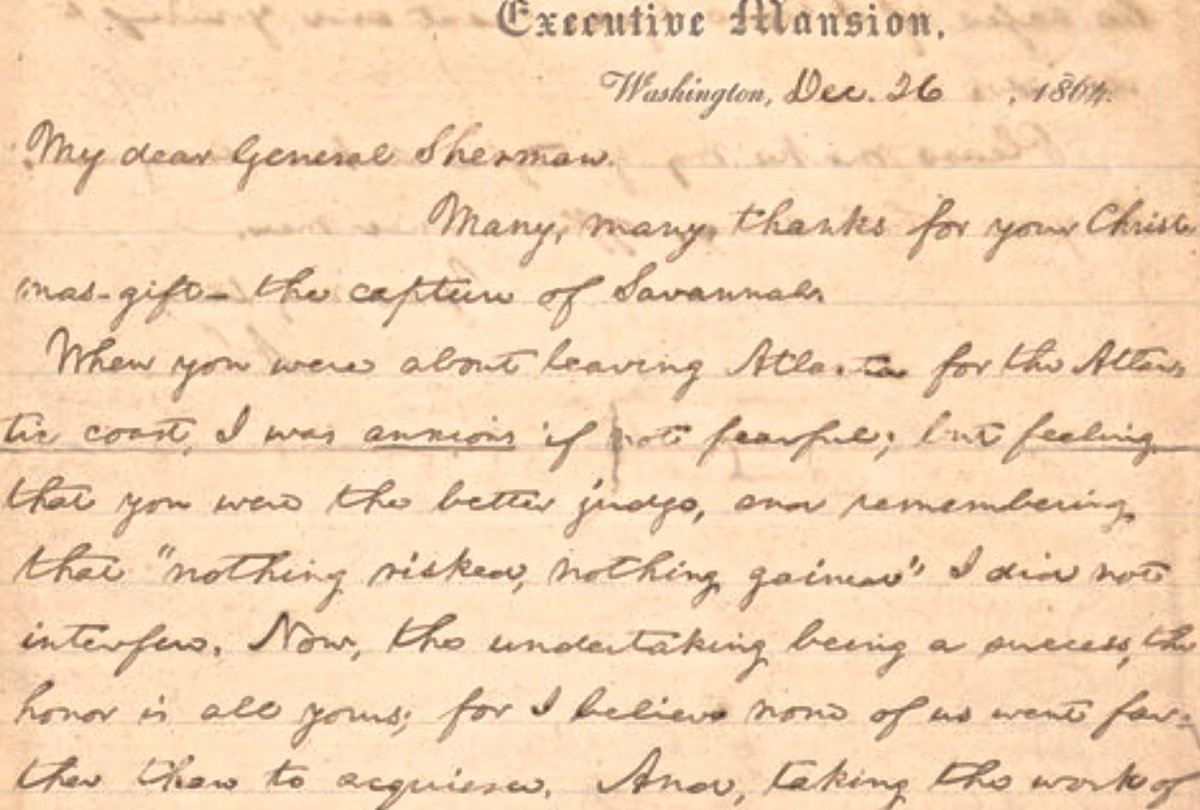 Executive Mansion,
Washington, Dec. 26, 1864.
My dear General Sherman.
Many, many, thanks for your Christ-
mas-gift- the capture of Savannah
When you were about leaving Atlanta for the Atlan-
tic coast, I was anxious if not fearful; but feeling
that you were the better judge, and remembering
that "nothing risked, nothing gained" I did not
interfere. Now, the undertaking being a success, the
honor is all yours; for I believe none of us went far-
ther than to acquiesce. And, taking the work of